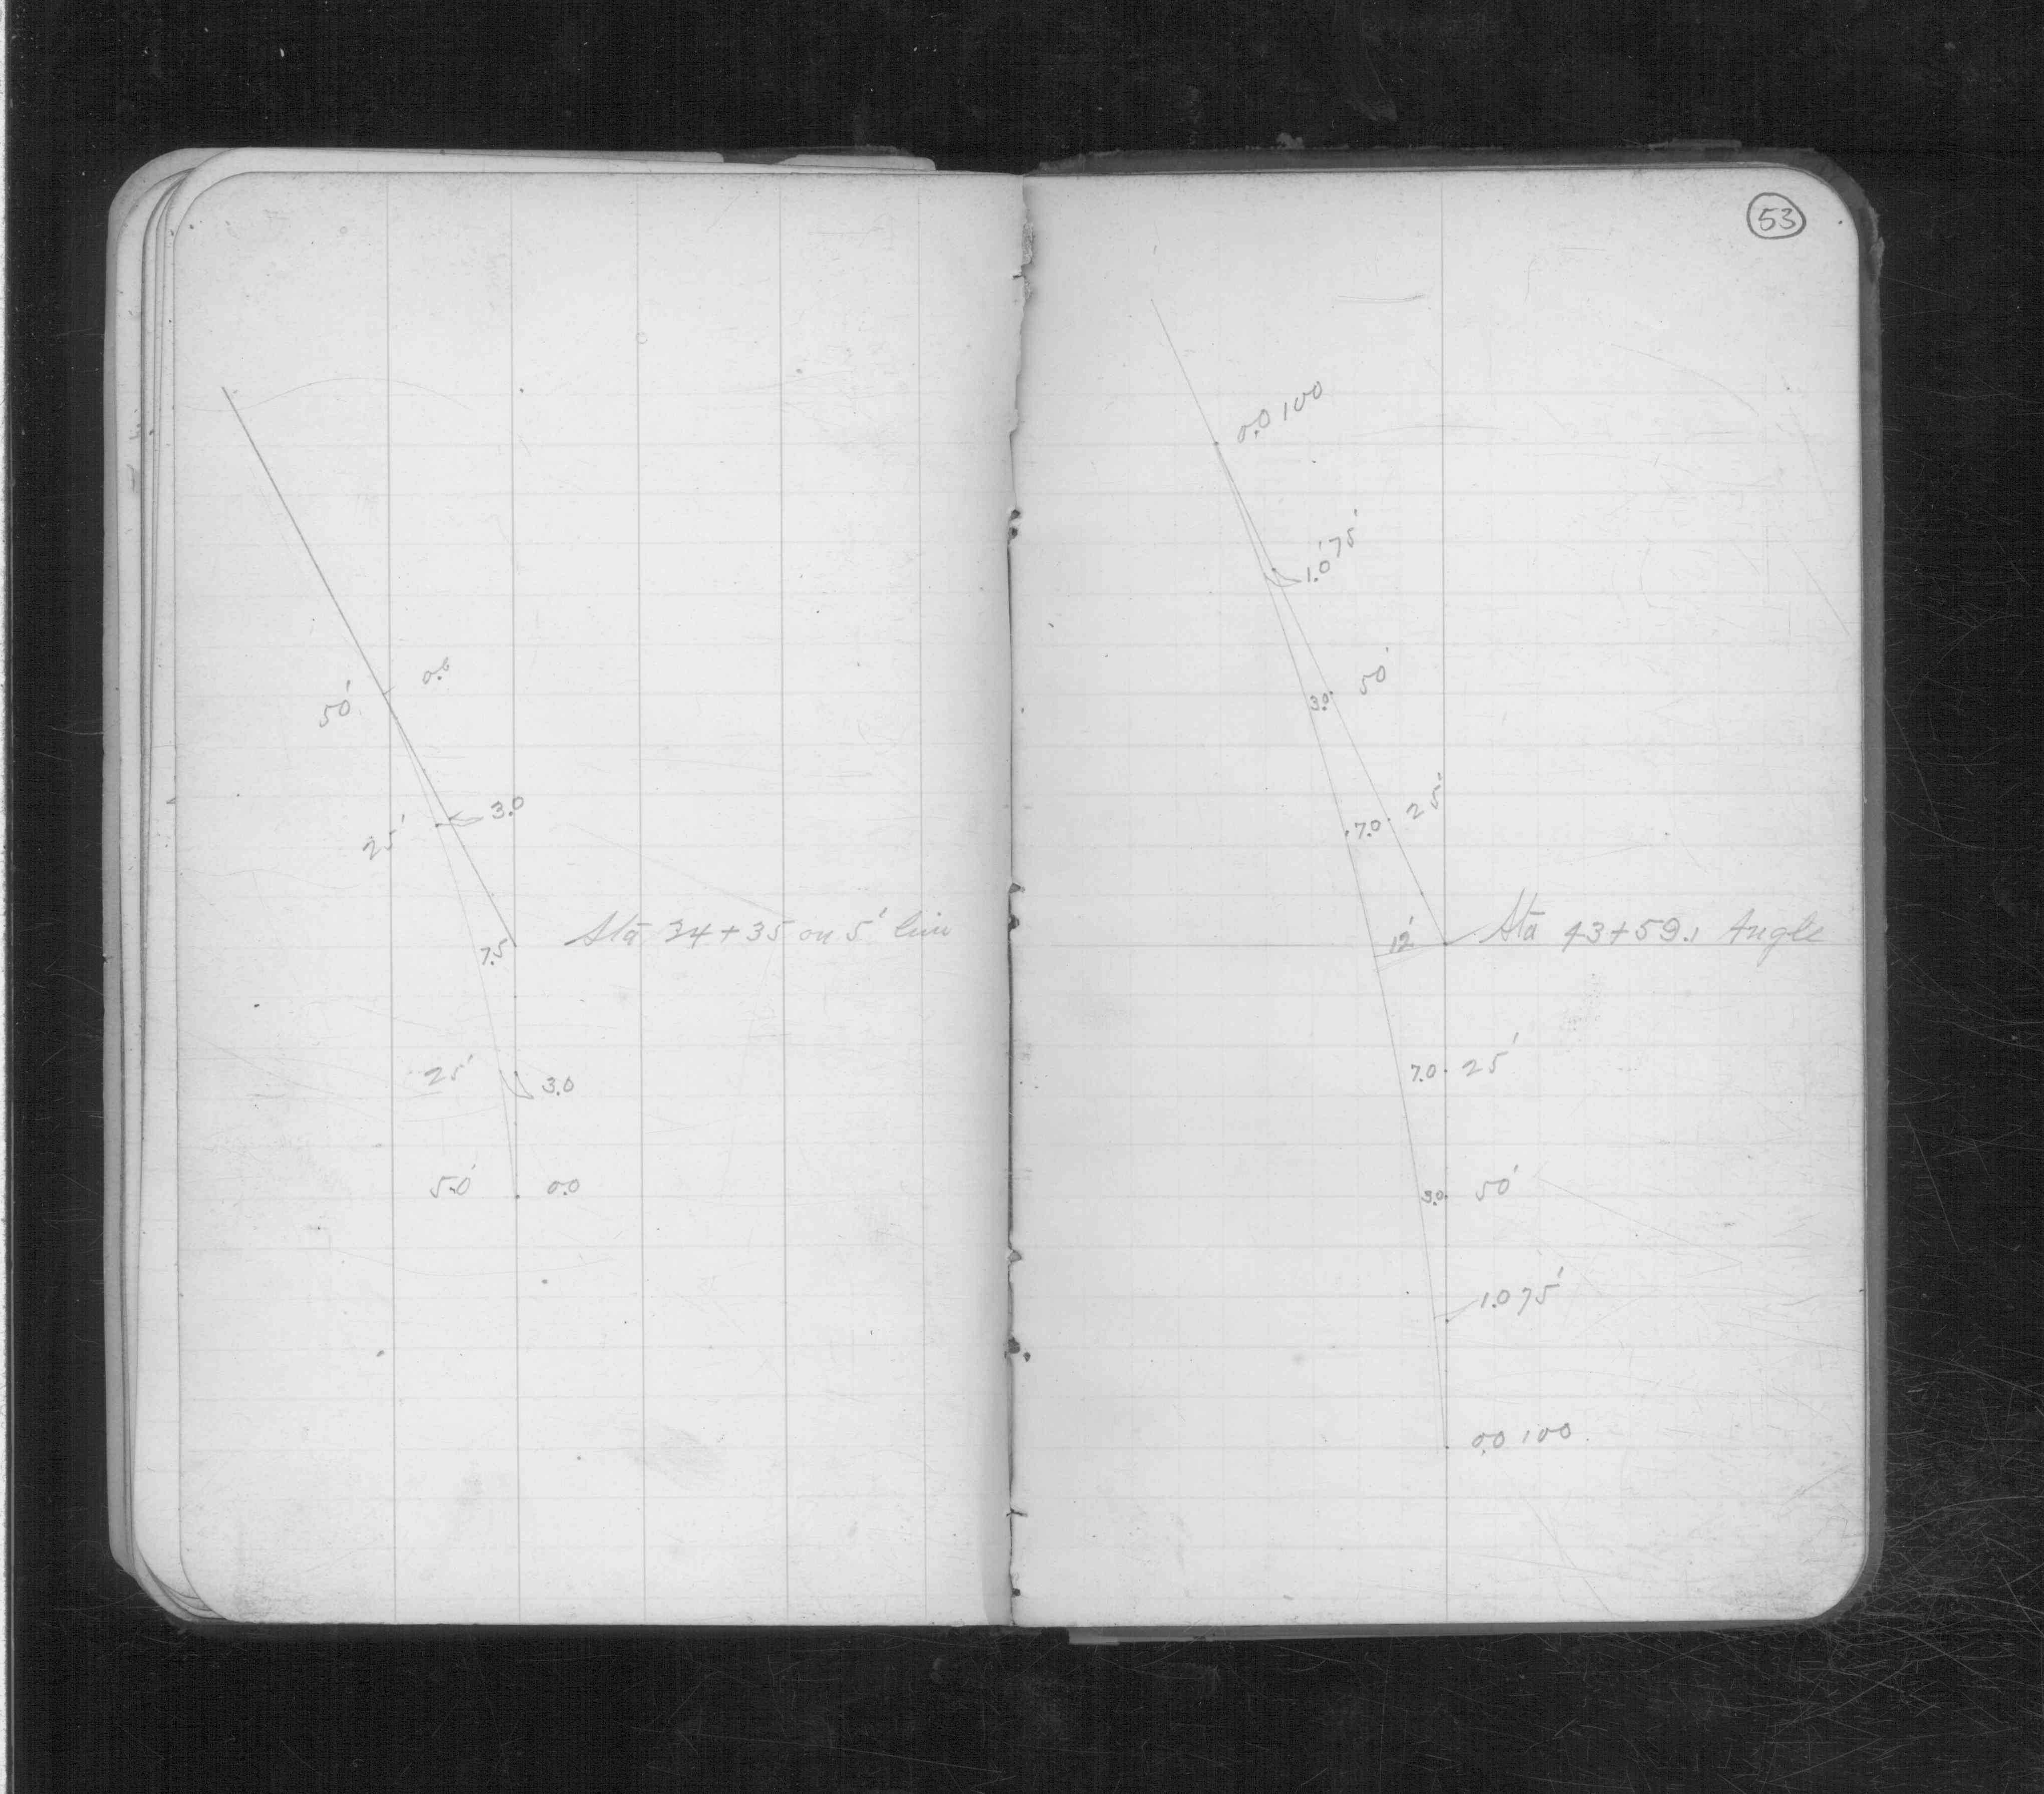 0.0
50'
3.0
25'
Sta 34+35 on 5' line
7.5
25' 3.0
50' 0.0
53
0.0 100
1.0' 75'
3.0 50'
7.0 25'
12' Sta 43+59.1 Angle
7.0 25'
3.0 50'
1.0 75'
0.0 100